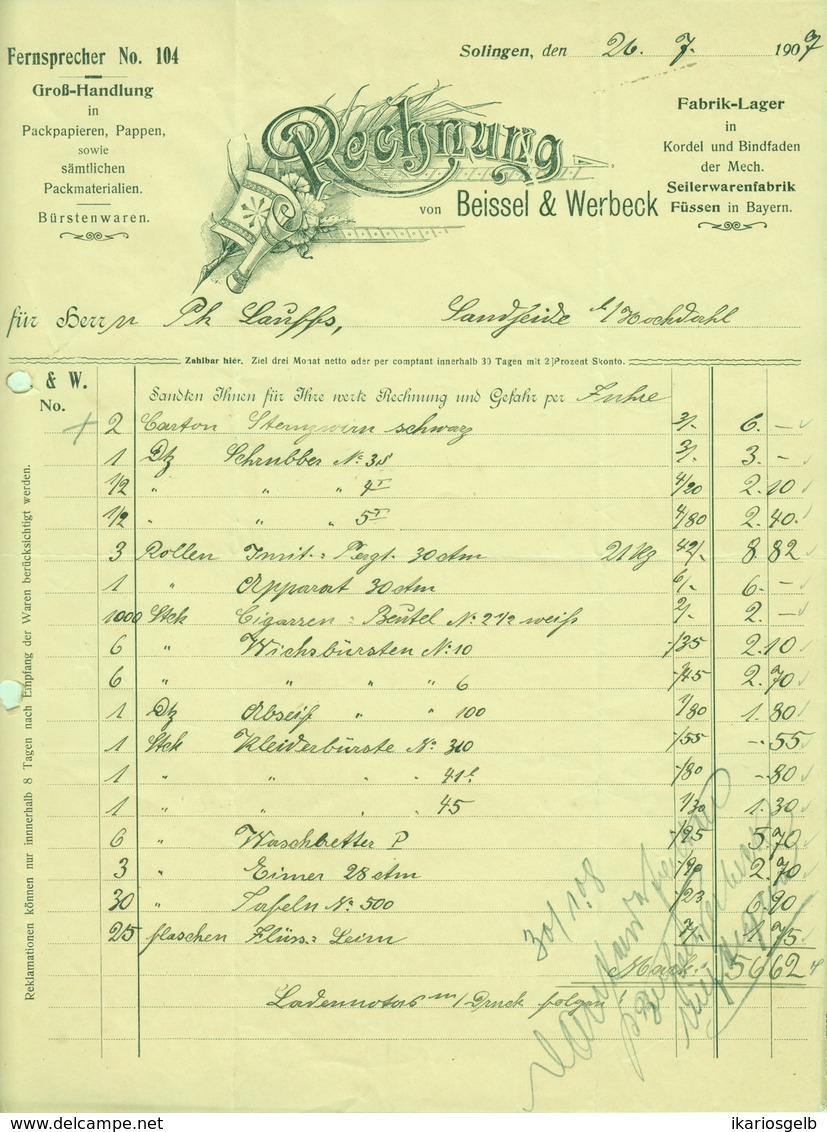 Fernsprecher No. 104
Groß-Handlung
in
Packpapieren, Pappen,
sowie
sämtlichen
Packmaterialien.
Bürstenwaren.
Solingen, den 26. 7. 1907
Rechnung
von Beissel & Werbeck
Fabrik-Lager
in
Kordel und Bindfaden
der Mech.
Seilerwarenfabrik
Füssen in Bayern.
für Herrn Ph Lauffs, b/Hochdahl
Zahlbar hier. Ziel drei Monat netto oder per comptant innerhalb 30 Tagen mit 2 Prozent Skonto.
& W.
No.
Sandten Ihnen für Ihre werte Rechnung und Gefahr per Fuhre
2 Carton Sternzwirn schwarz 3/- 6. —
1 Dtz Schrubber No 3S 3/- 3. -
1/2 " " " 4T 4/20 2.10
1/2 " " " 5T 4/80 2.40
3 Rollen Imit: Pergt. 30 ctm 21 Kg 42/- 8 82
1 " Apparat 30 ctm 6/- 6. —
1000 Stck Cigarren-Beutel No 2 1/2 weiß 2/- 2. —
6 " Wichsbürsten No 10 -/35 2.10
6 " " " " 6 -/45 2.70
1 Dtz Abseif " " 100 1/80 1.80
1 Stck Kleiderbürste No 310 -/55 -.55
1 " " " " 41 -/80 -.80
1 " " " " 45 1/30 1.30
6 " Waschbretter P -/95 5.70
3 " Eimer 28 ctm -/90 2.70
30 " Tafeln No 500 -/23 6.90
25 flaschen Flüss: Leim 7/- 1.75
Mark: 56 62
Ladennotas m/Druck folgen!
30/1.08
Reklamationen können nur innerhalb 8 Tagen nach Empfang der Waren berücksichtigt werden.
www.delcampe.net
ikariosgelb